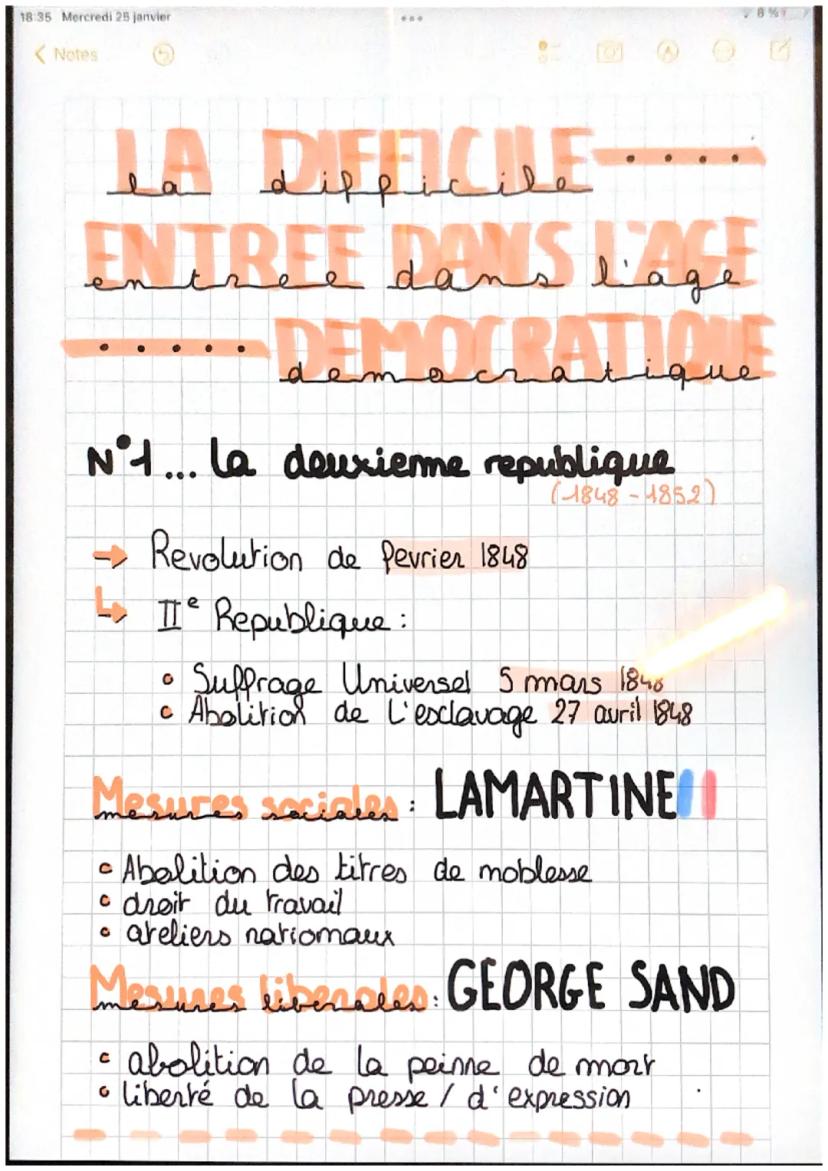 18:35 Mercredi 25 janvier
8 %
Notes
LA DIFFICILE
la difficile
ENTREE DANS L'AGE
entree dans l'age
DEMOCRATIQUE
democratique
N°1... la deuxieme republique
(1848 - 1852)
→ Revolution de fevrier 1848
↳ IIe Republique :
• Suffrage Universel 5 mars 1848
• Abolition de L'esclavage 27 avril 1848
Mesures sociales : LAMARTINE
mesures sociales
• Abolition des titres de noblesse
• droit du travail
• ateliers nationaux
Mesures liberales : GEORGE SAND
mesures liberales
• abolition de la peinne de mort
• liberté de la presse / d'expression